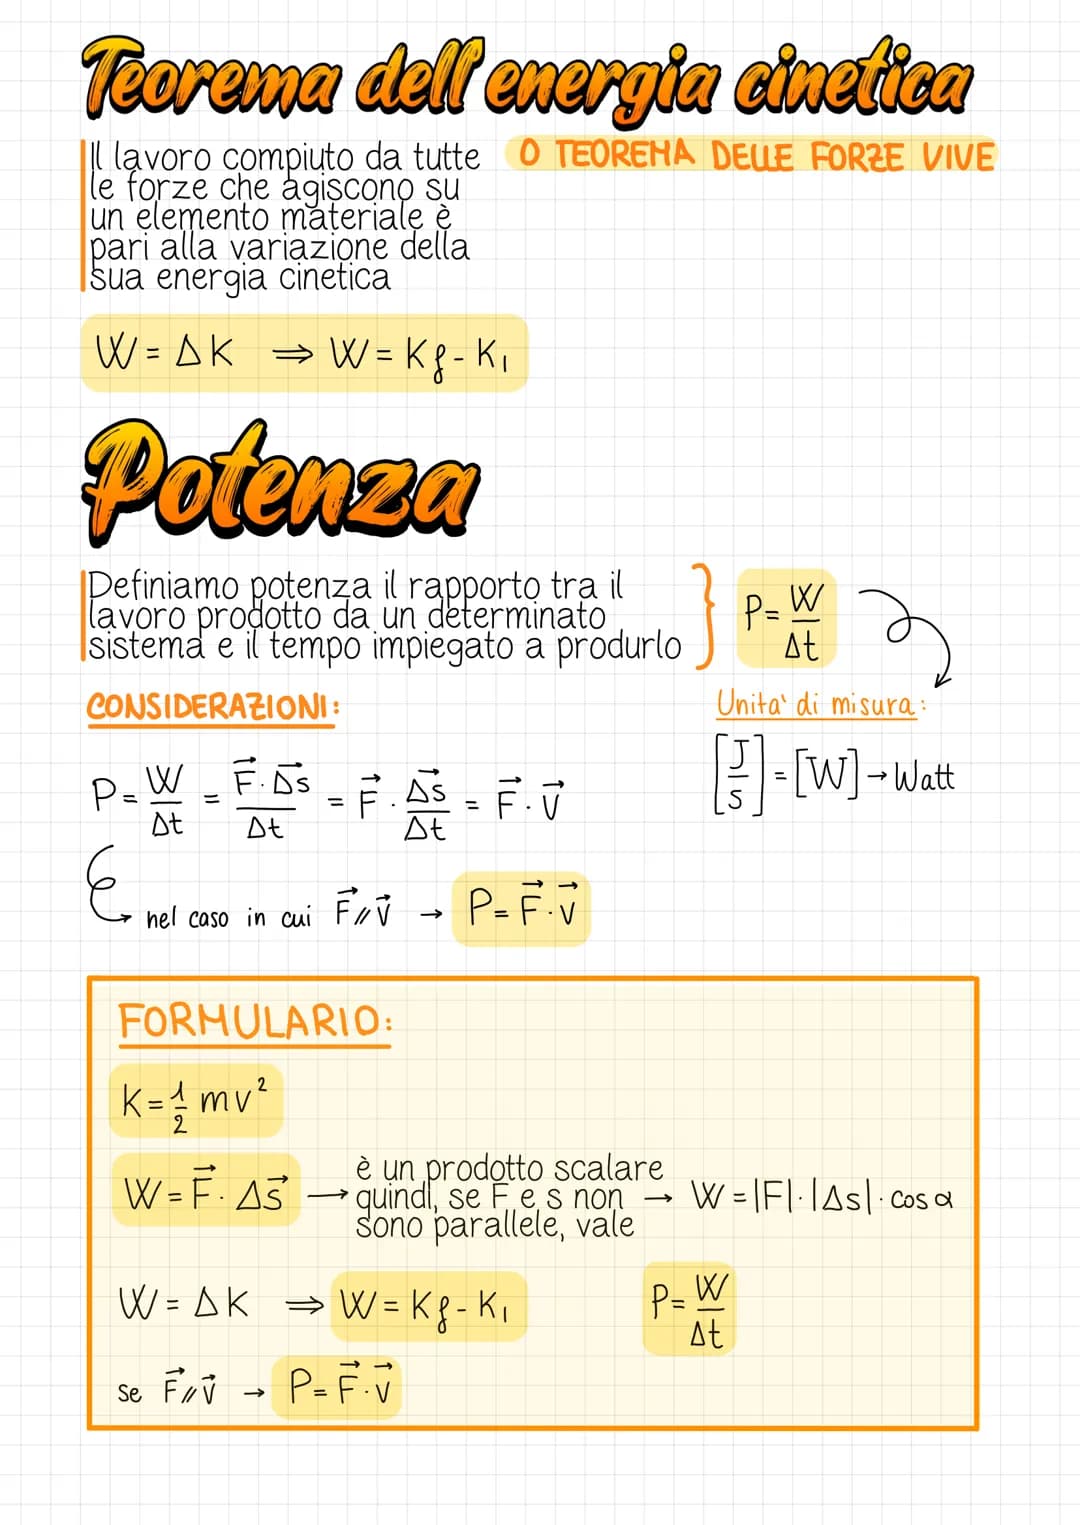 Teorema dell'energia cinetica
O TEOREMA DELLE FORZE VIVE
Il lavoro compiuto da tutte
le forze che agiscono su
un elemento materiale è
pari alla variazione della
sua energia cinetica
W = ΔK ⇒ W = Kf - Ki
Potenza
Definiamo potenza il rapporto tra il
lavoro prodotto da un determinato
sistema e il tempo impiegato a produrlo
} P = W/Δt
CONSIDERAZIONI:
Unita' di misura:
[J/s] = [W] → Watt
P = W/Δt = F⃗·Δs⃗/Δt = F⃗·Δs⃗/Δt = F⃗·v⃗
nel caso in cui F⃗//v⃗ → P = F⃗·v⃗
FORMULARIO:
K = 1/2 mv²
W = F⃗·Δs⃗ →
è un prodotto scalare
quindi, se F e s non
sono parallele, vale
→ W = |F|·|Δs|·cos α
W = ΔK ⇒ W = Kf - Ki
P = W/Δt
se F⃗//v⃗ → P = F⃗·v⃗